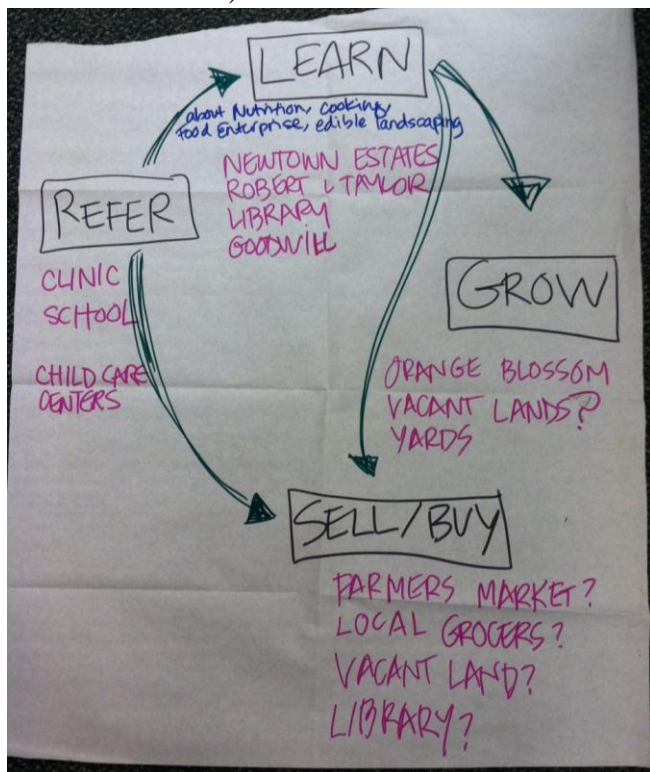 LEARN
about Nutrition, cooking,
Food Enterprise, edible landscaping
NEWTOWN ESTATES
ROBERT L TAYLOR
LIBRARY
GOODWILL
REFER
CLINIC
SCHOOL
CHILD CARE
CENTERS
GROW
ORANGE BLOSSOM
VACANT LANDS?
YARDS
SELL/BUY
FARMERS MARKET?
LOCAL GROCERS?
VACANT LAND?
LIBRARY?